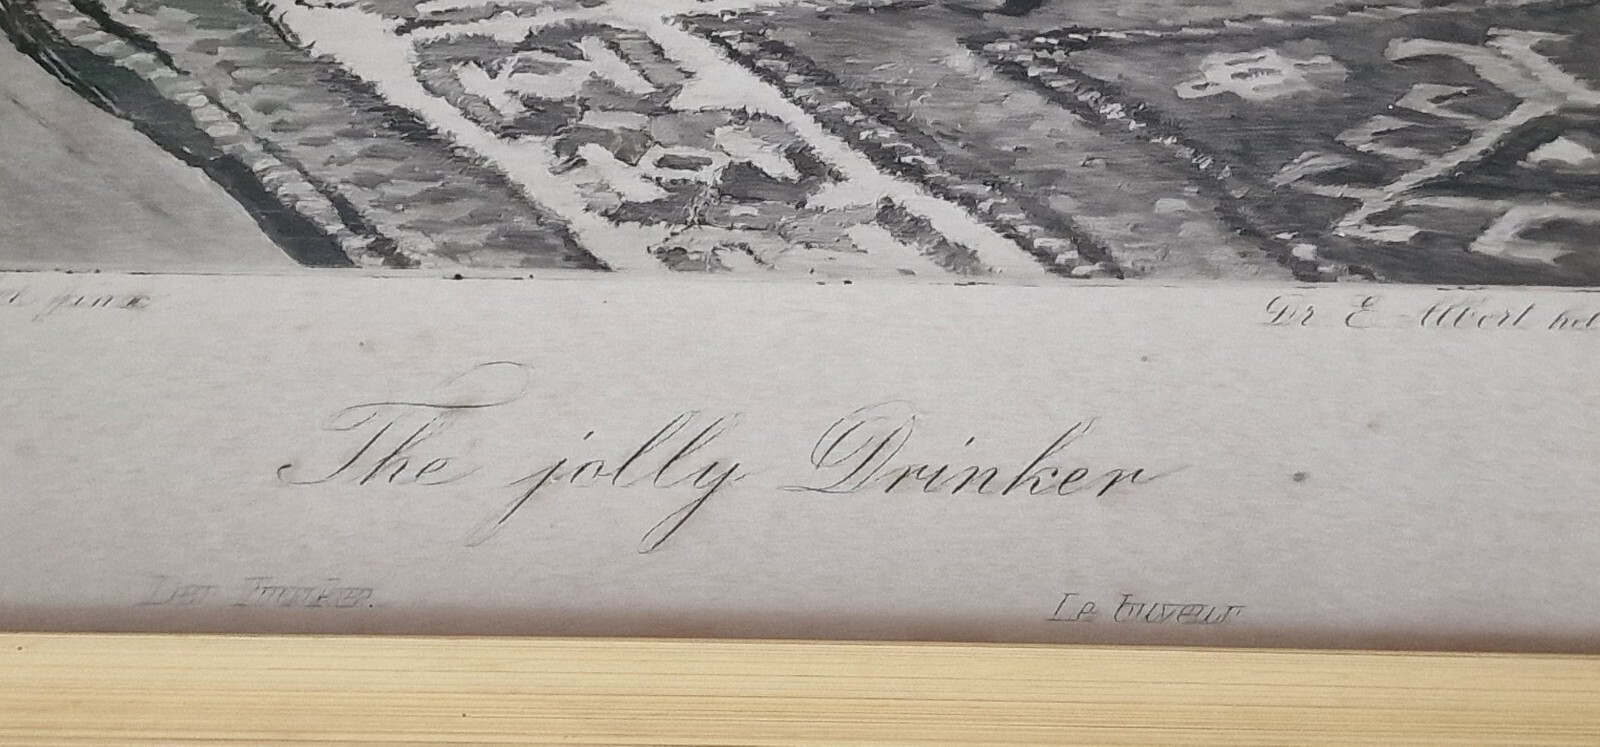 pinx
Dr E Albert hel
The jolly Drinker
Der Trinker.
Le buveur